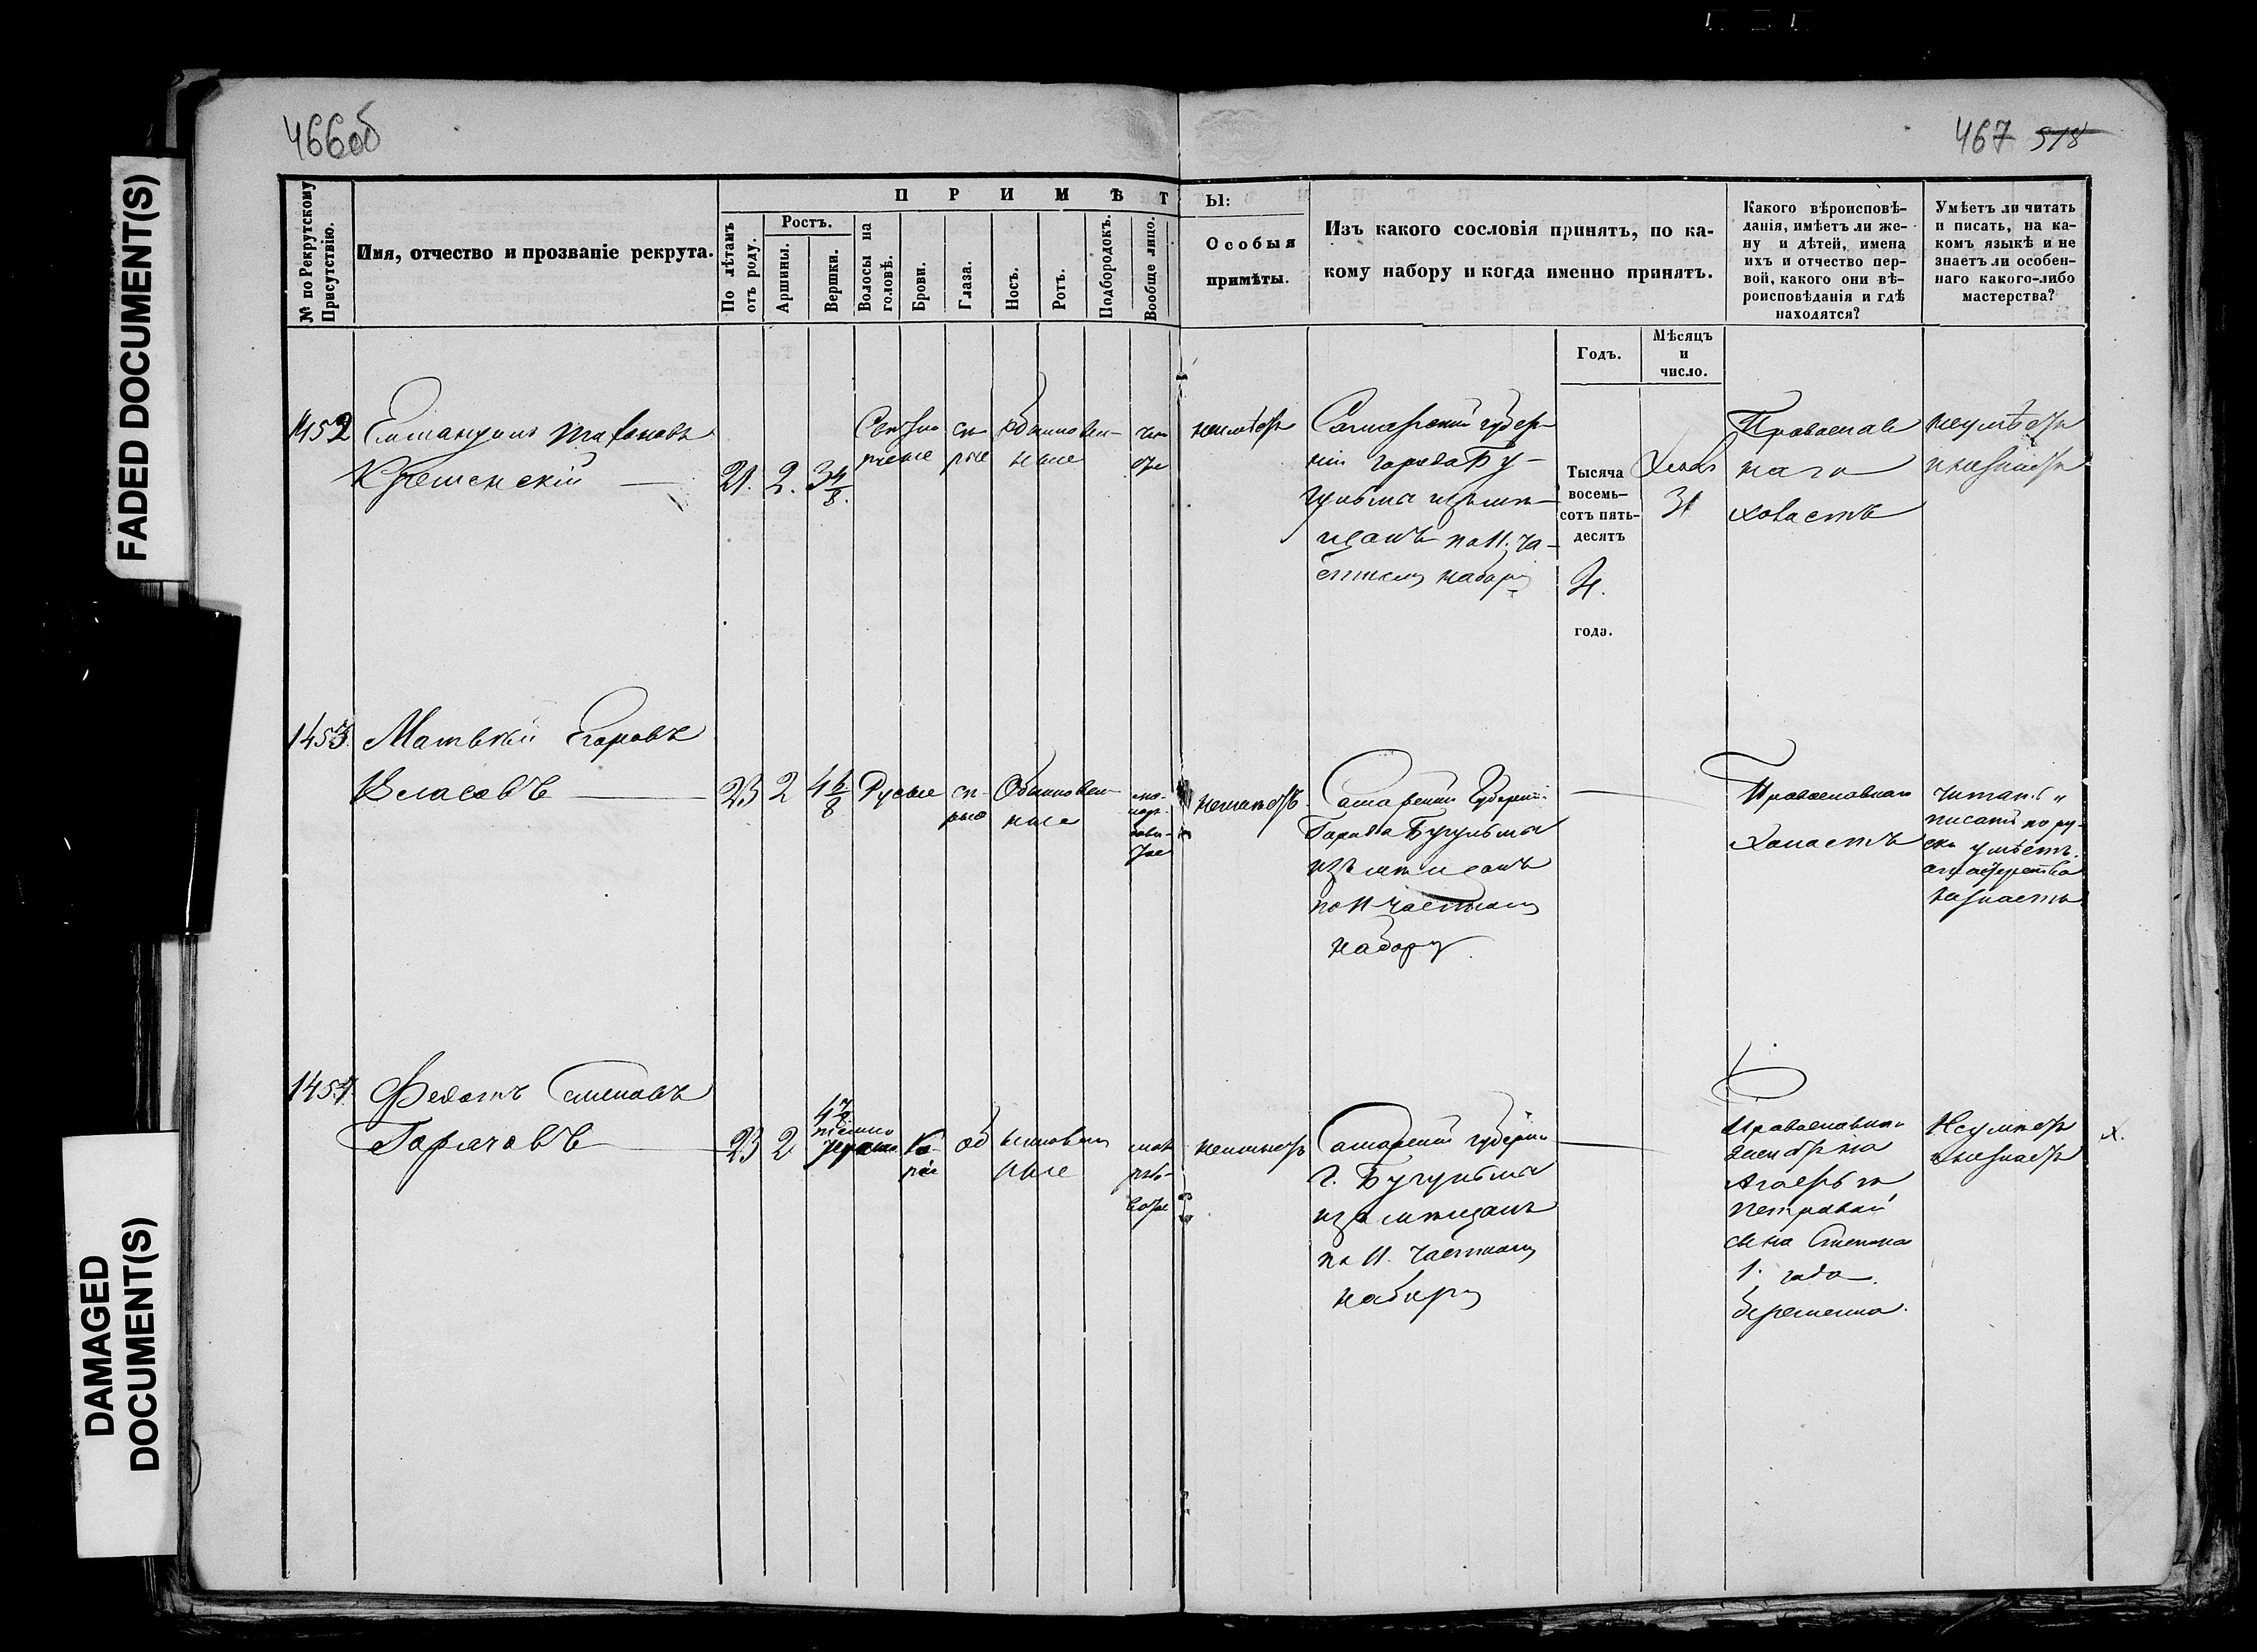 FADED DOCUMENT(S)
DAMAGED
DOCUMENT(S)
466об
467 518
№ по Рекрутскому
Присутствію.
Имя, отчество и прозваніе рекрута.
ПРИМѢТ
Ы:
По лѣтамъ
отъ роду.
Ростъ.
Аршины.
Вершки.
Волосы на
головѣ.
Брови.
Глаза.
Носъ.
Ротъ.
Подбородокъ.
Вообще лицо.
Особыя
примѣты.
Изъ какого сословія принятъ, по ка-
кому набору и когда именно принятъ.
Какого вѣроисповѣ-
данія, имѣетъ ли же-
ну и дѣтей, имена
ихъ и отчество пер-
вой, какого они вѣ-
роисповѣданія и гдѣ
находятся?
Умѣетъ ли читать
и писать, на ка-
комъ языкѣ и не
знаетъ ли особен-
наго какого-либо
мастерства?
Годъ.
Мѣсяцъ
и
число.
1452
Крешенскій
21. 2. 3 4/8.
сѣ-
рые
Обыкновен-
ные
неимѣетъ
Самарской губер-
ніи города Бу-
гульмы изъ мѣ-
щанъ по 11. ча-
стному набору
Тысяча
восемь-
сотъ пять-
десятъ
4.
года.
31
Православ
наго
холостъ
неумѣетъ
и незнаетъ
1453.
Матвѣй Егоровъ
Власовъ
23 2 4 6/8 Русые
сѣ-
рые
Обыкновен-
ные
неимѣетъ
Самарской Губерніи
Города Бугульмы
изъ мѣщанъ
по 11 частному
набору
Православнаго
холостъ
читать и
писать по ру-
ски умѣетъ.
а мастерства
незнаетъ
1454.
Федотъ Семеновъ
Горячовъ
23 2 4 7/8
темно
русые
ка-
ріе
обыкновен
ные
неимѣетъ
Самарской губерніи
г. Бугульмы
изъ мѣщанъ
по 11. частному
набору
Православнаго
женатъ на
Петровой
сына Степана
1. года
беременна.
Неумѣетъ
и незнаетъ
х.